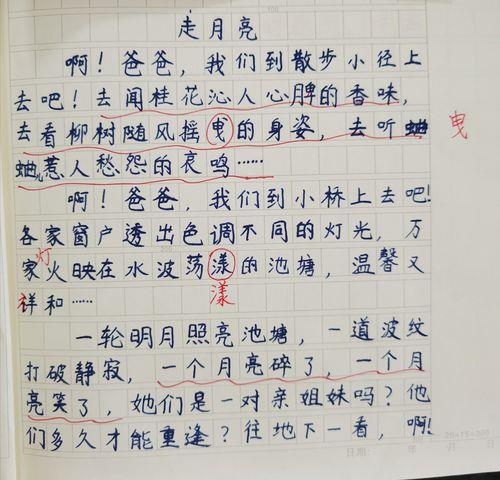 走月亮
啊！爸爸，我们到散步小径上
去吧！去闻桂花沁人心脾的香味，
去看柳树随风摇曳的身姿，去听蛐 曳
蛐儿惹人愁怨的哀鸣……
啊！爸爸，我们到小桥上去吧！
各家窗户透出色调不同的灯光，万
家灯火映在水波荡漾的池塘，温馨又
祥和…… 漾
一轮明月照亮池塘，一道波纹
打破静寂，一个月亮碎了，一个月
亮笑了，她们是一对亲姐妹吗？他
们多久才能重逢？往地下一看，啊！
20×15=300
日期： 年 月 日